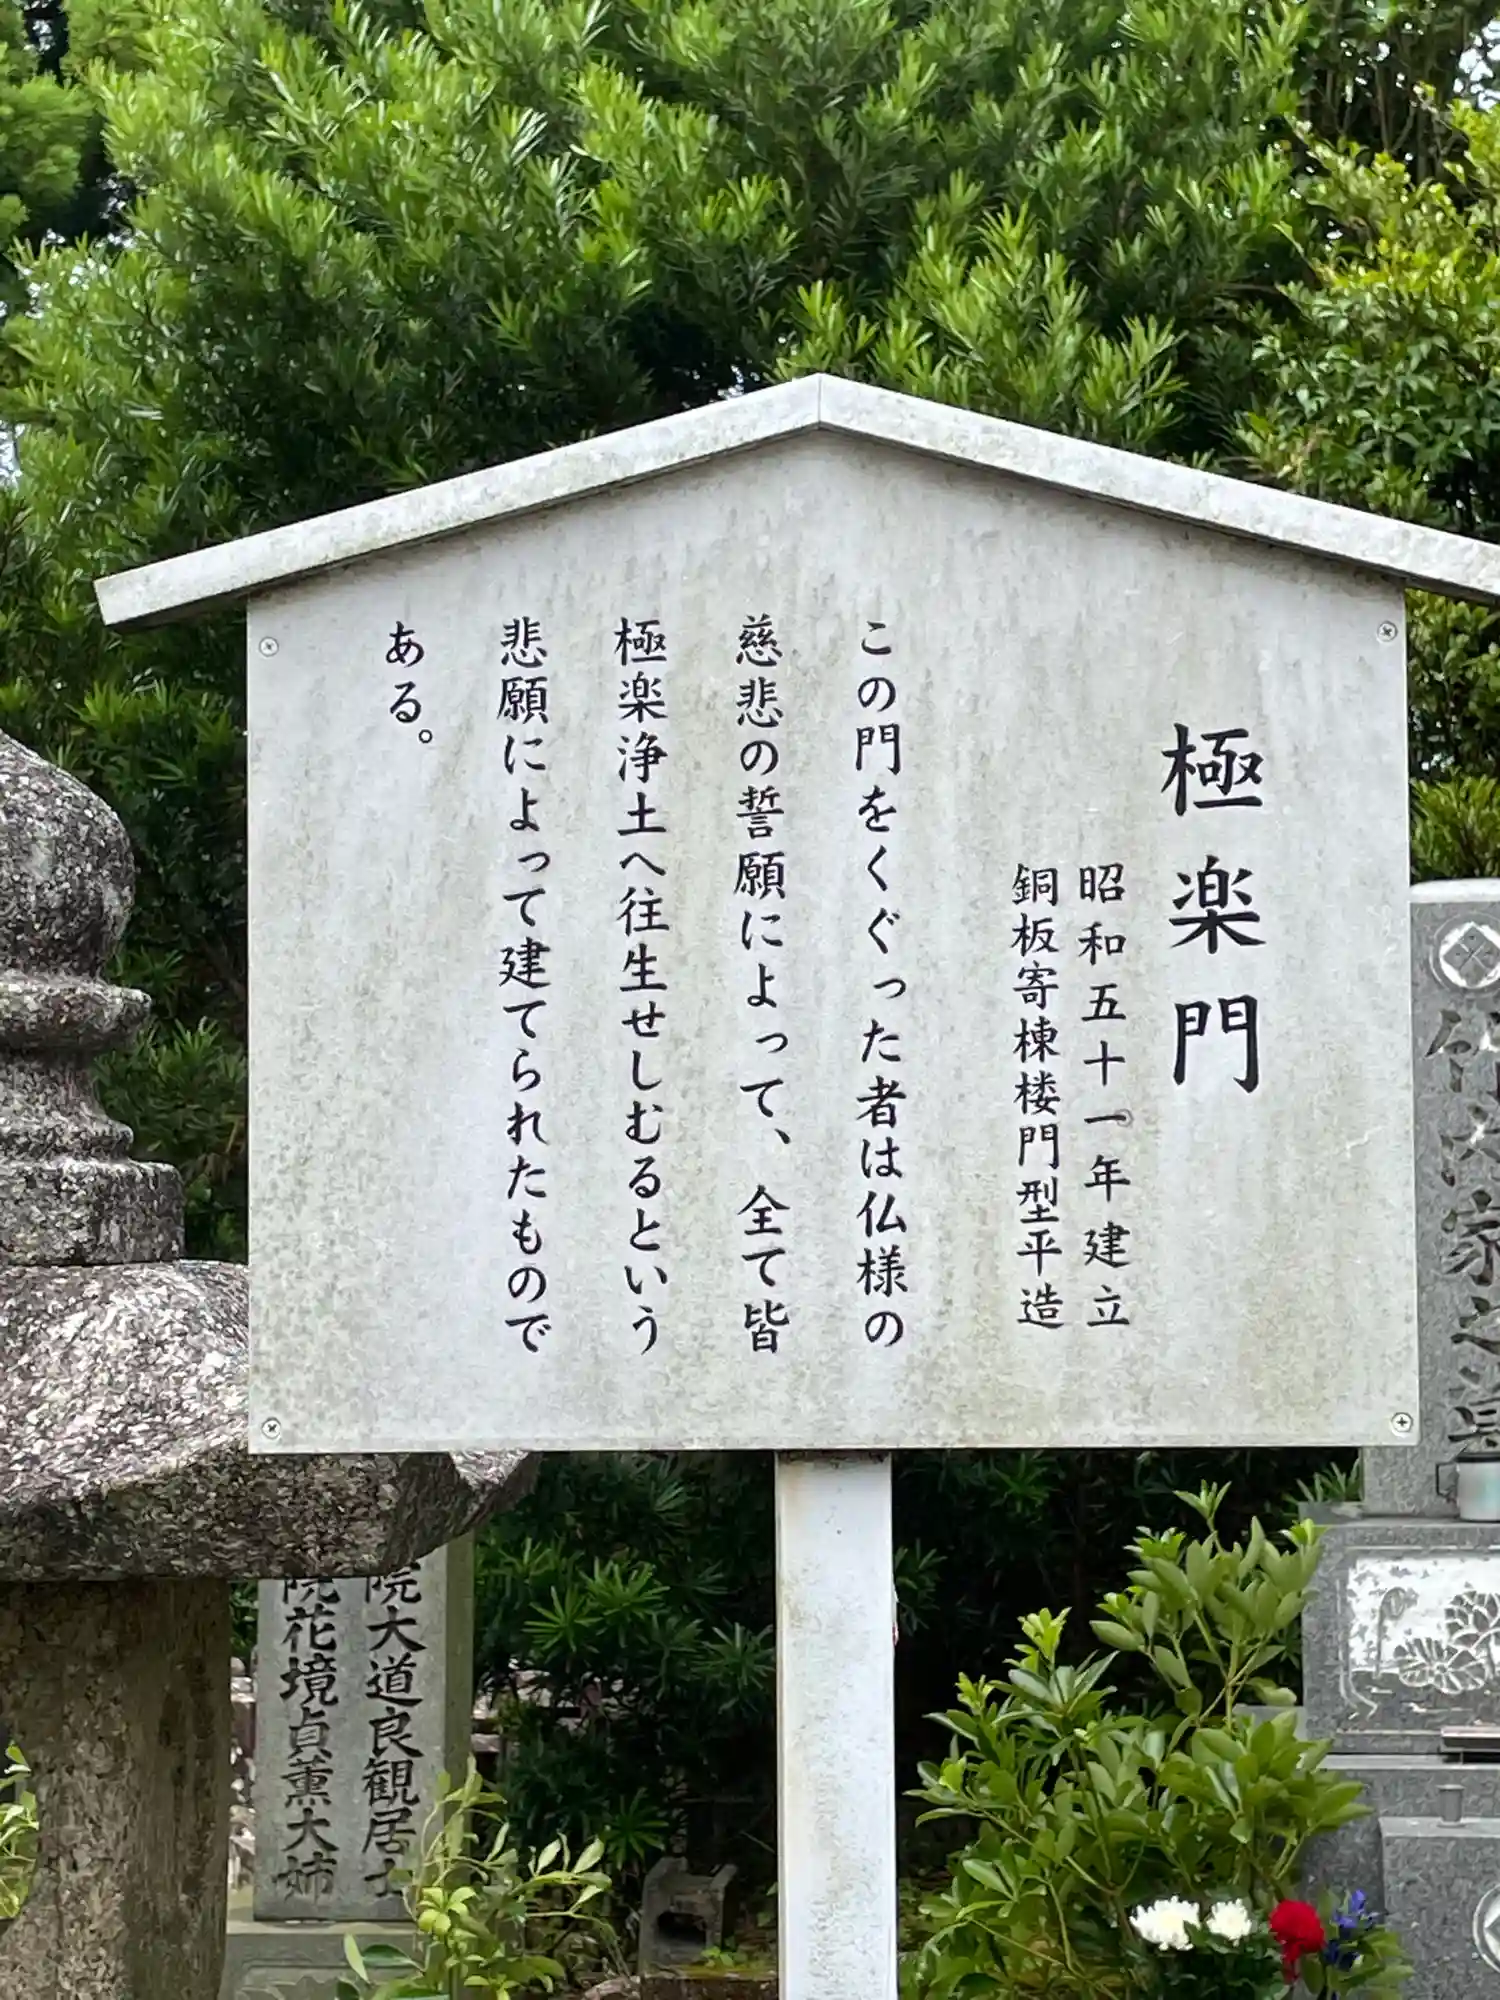 極楽門
昭和五十一年建立
銅板寄棟楼門型平造
この門をくぐった者は仏様の
慈悲の誓願によって、全て皆
極楽浄土へ往生せしむるという
悲願によって建てられたもので
ある。
家之墓
院大道良観居士
院花境貞薫大姉